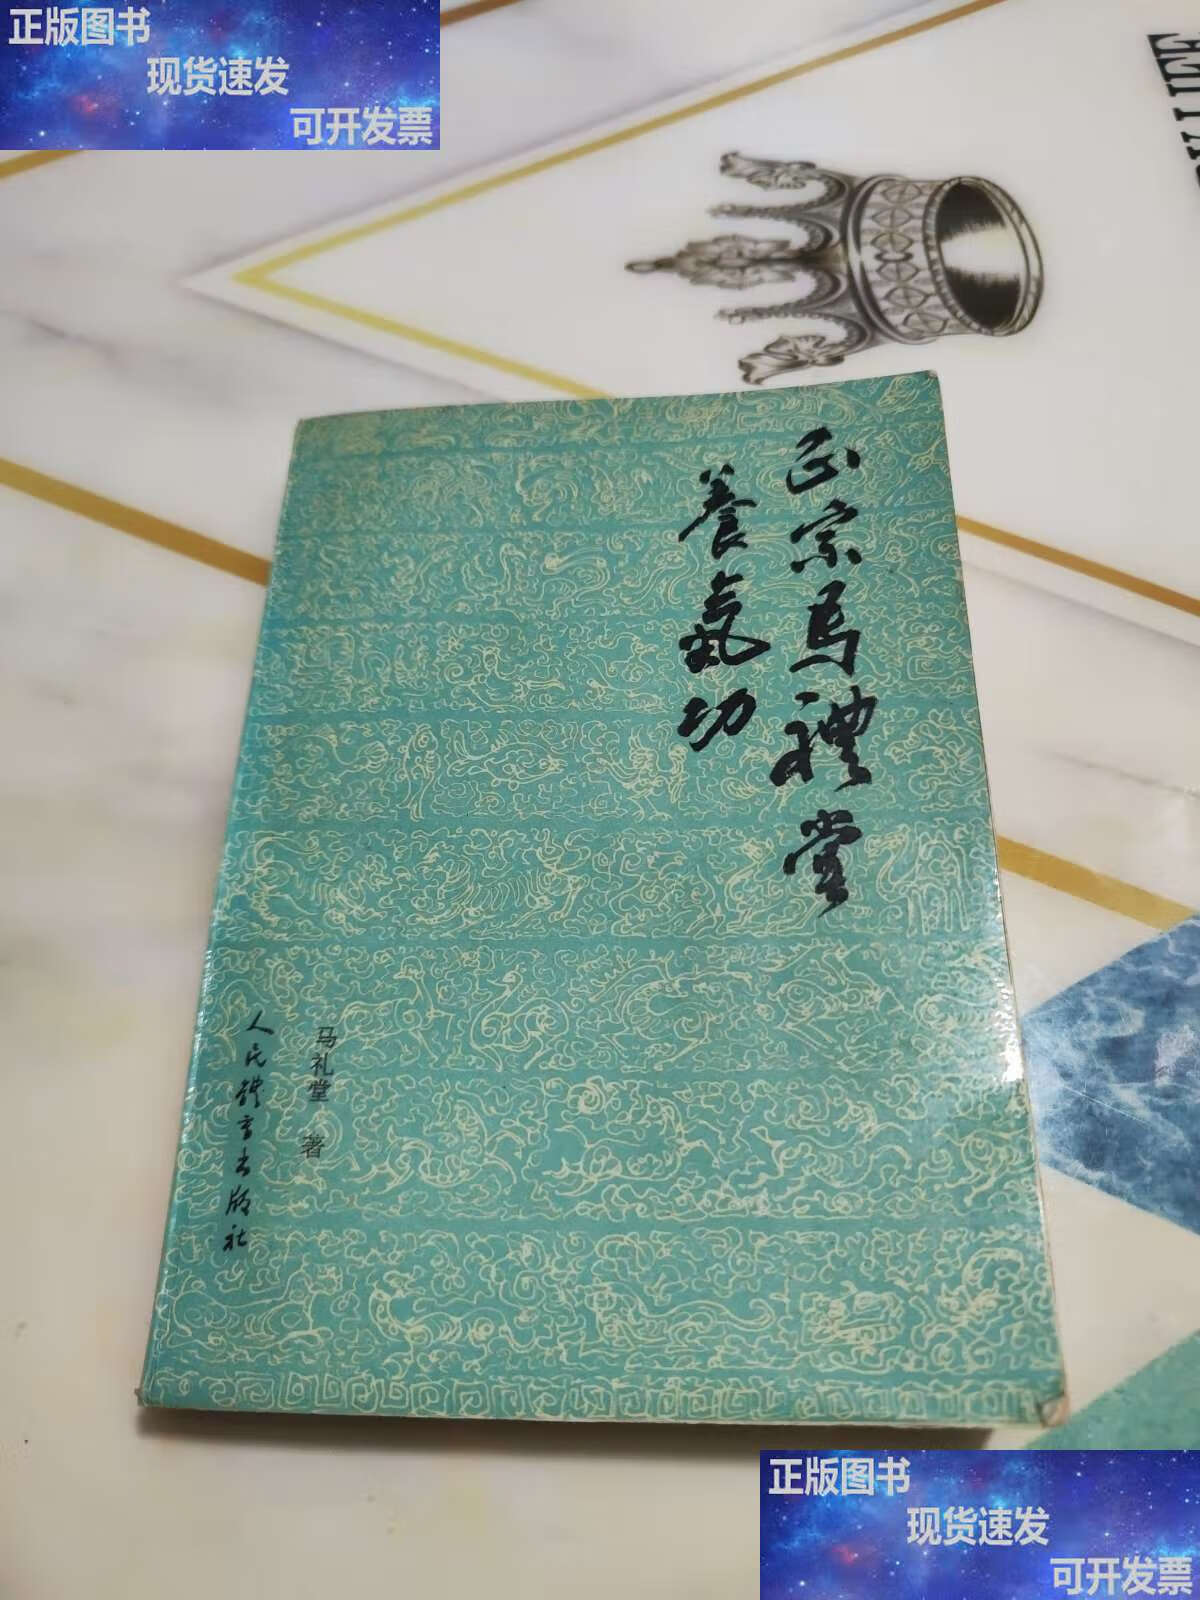 正版图书
现货速发
可开发票
正宗马禮堂
養氣功
马礼堂 著
人民體育出版社
正版图书
现货速发
可开发票